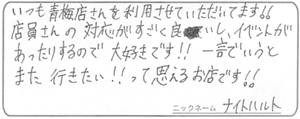 いつも青梅店さんを利用させていただいてます!!
店員さんの対応がすごく良いし、イベントが
あったりするので大好きです!! 一言でいうと
また行きたい!!って思えるお店です!!
ニックネーム ナイトハルト